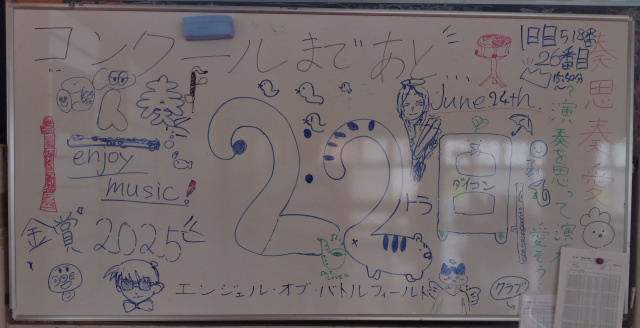 コンクールまであと...
1日目518番
26番目
15:50分〜
June 24th.
奏思奏愛
演奏を思って演
愛そう
enjoy
music.
22日
トラ
ダイコン
金賞2025
エンジェル・オブ・バトルフィールド
クラブ